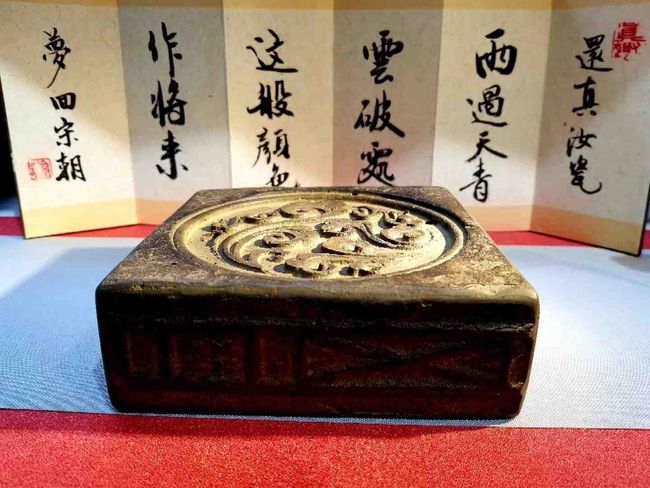 還真汝瓷
雨過天青
雲破處
这般顏色
作將来
夢回宋朝